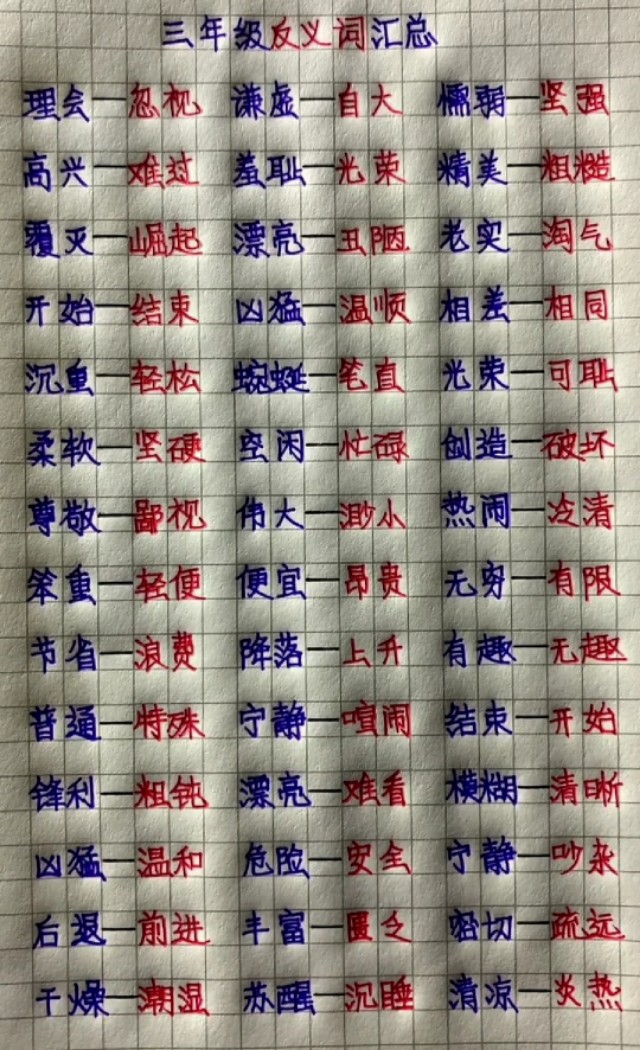 三年级反义词汇总
理会—忽视 谦虚—自大 懦弱—坚强
高兴—难过 羞耻—光荣 精美—粗糙
覆灭—崛起 漂亮—丑陋 老实—淘气
开始—结束 凶猛—温顺 相差—相同
沉重—轻松 蜿蜒—笔直 光荣—可耻
柔软—坚硬 空闲—忙碌 创造—破坏
尊敬—鄙视 伟大—渺小 热闹—冷清
笨重—轻便 便宜—昂贵 无穷—有限
节省—浪费 降落—上升 有趣—无趣
普通—特殊 宁静—喧闹 结束—开始
锋利—粗钝 漂亮—难看 横糊—清晰
凶猛—温和 危险—安全 宁静—吵杂
后退—前进 丰富—匮乏 密切—疏远
干燥—潮湿 苏醒—沉睡 清凉—炎热